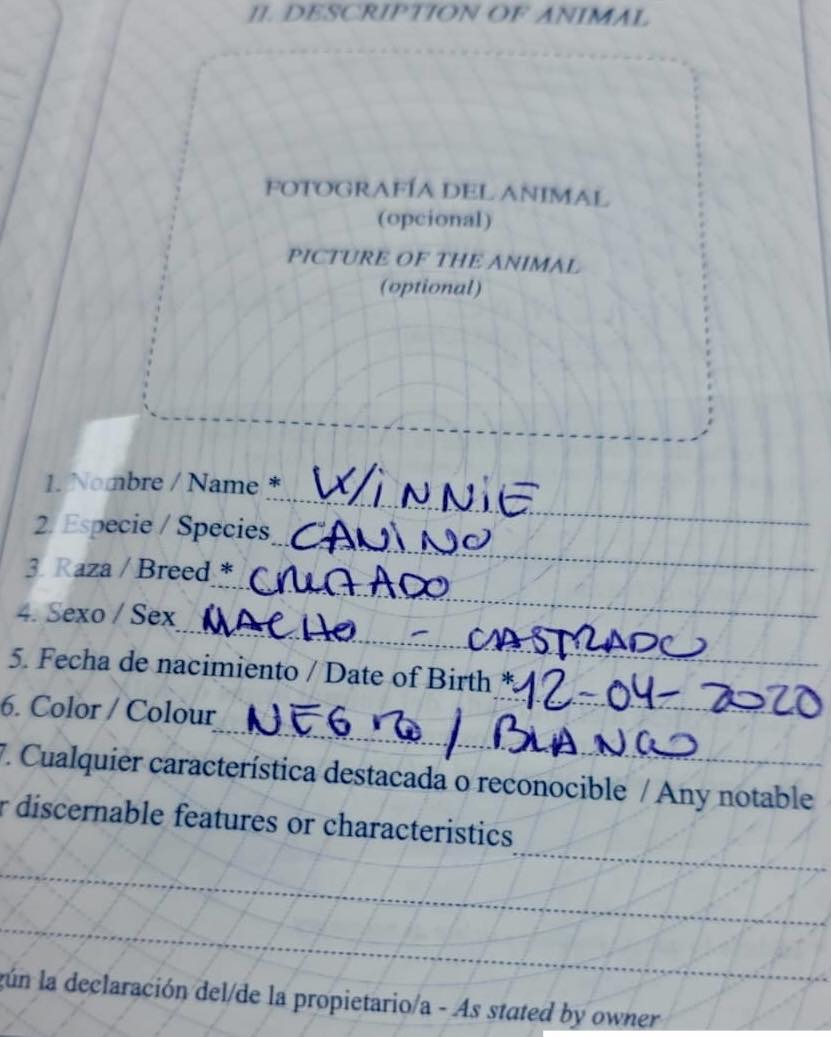 II. DESCRIPTION OF ANIMAL
FOTOGRAFÍA DEL ANIMAL
(opcional)
PICTURE OF THE ANIMAL
(optional)
1. Nombre / Name * WINNIE
2. Especie / Species CANINO
3. Raza / Breed * CRUZADO
4. Sexo / Sex MACHO - CASTRADO
5. Fecha de nacimiento / Date of Birth * 12-04-2020
6. Color / Colour NEGRO / BLANCO
7. Cualquier característica destacada o reconocible / Any notable
r discernable features or characteristics
gún la declaración del/de la propietario/a - As stated by owner